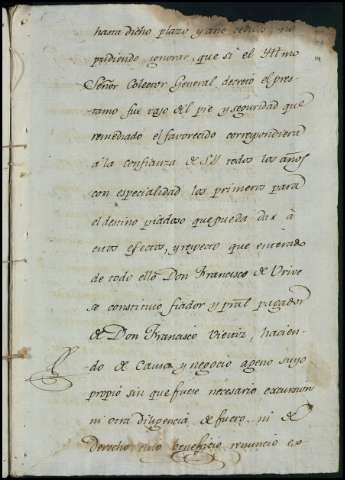 hasta dicho plazo y año
pudiendo ignorar, que si el Yltmo
Señor Colector General decretó el pres-
tamo fue vajo del pie y seguridad que
remediado el favorecido correspondiera
a la confianza de S.M. todos los años
con especialidad los primeros para
el destino piadoso que pueda dar à
estos efectos, y respecto que enterado
de todo ello Don Francisco de Urive
se constituio fiador y pral pagador
de Don Francisco hacien-
do de Causa y negocio ageno suyo
propio sin que fuese necesario excursion
ni otra diligencia de fuero, ni de
derecho cuio beneficio renunció co-